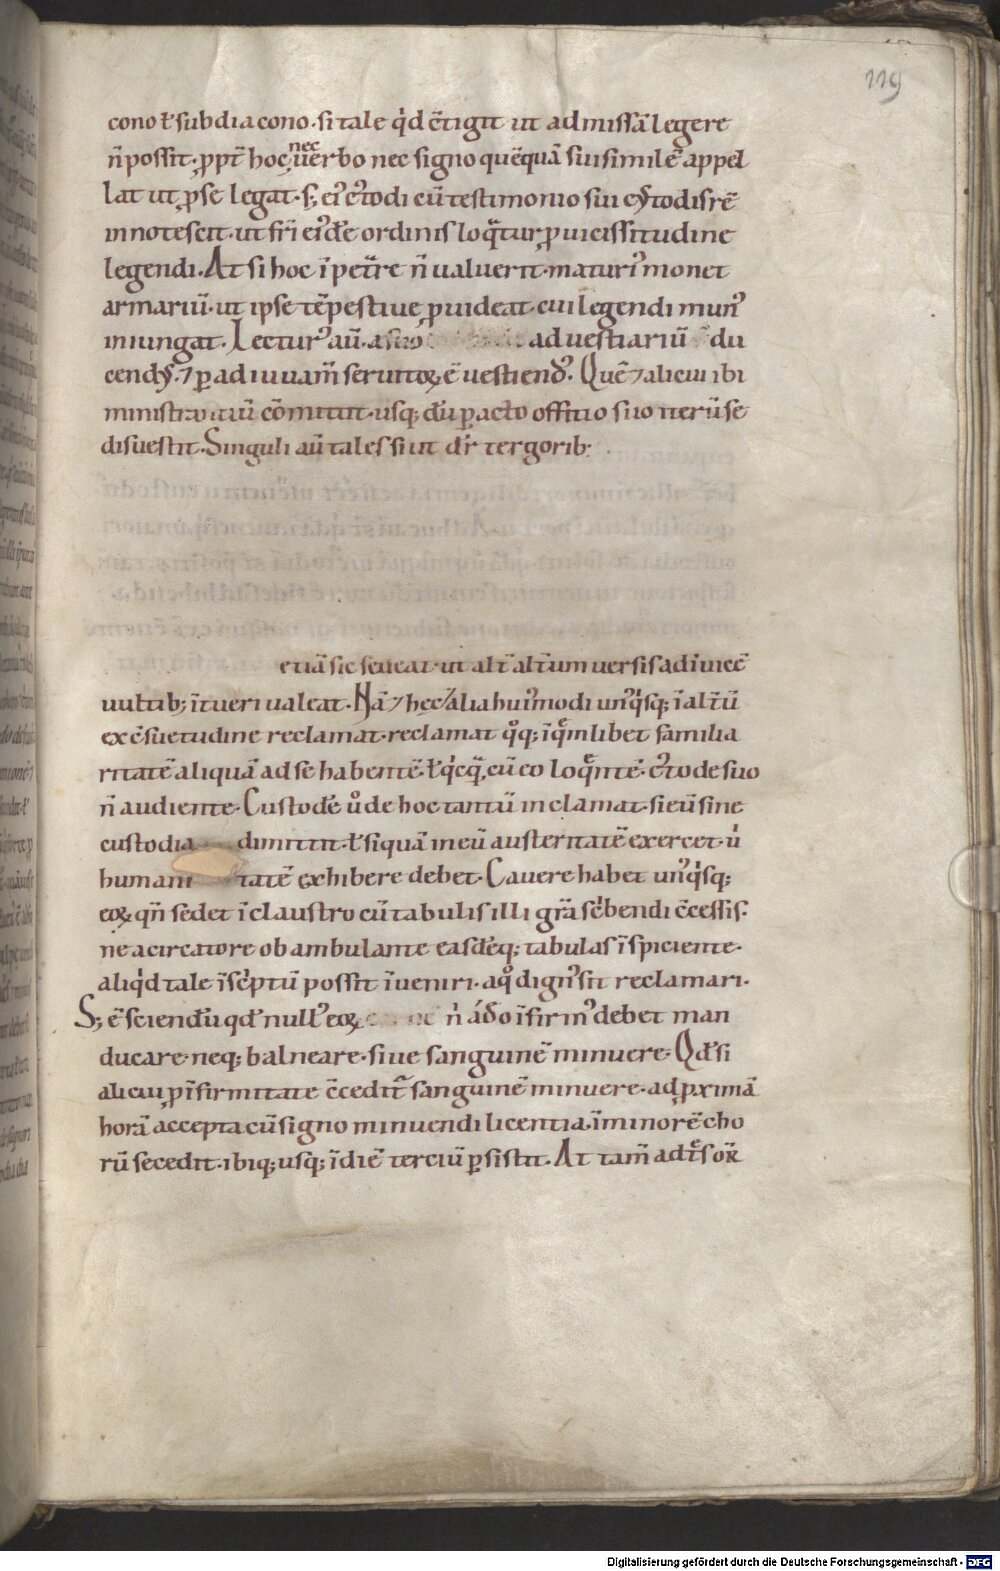 119
cono ł subdiacono. si tale qͥd c̄tigit ut ad missā legere
n̄ possit. ꝓpt̄ hoc nec uerbo nec signo quēquā sui similē appel
lat ut ꝓ se legat. s; eiꝰ c̓todi cū testimonio sui cꝰtodis rē
innotescit. ut fr̄i eiꝰdē ordinis loq̄tur ꝓ uicissitudine
legendi. At si hoc īpetͣre n̄ ualuerit. maturiꝰ monet
armariū. ut ipse tēpestiue ꝓuideat. cui legendi munꝰ
iniungat. Lecturꝰ aū. a suo ad uestiariū du
cendꝰ. ⁊ ꝑ adiuuam̄ seruitoꝝ ē uestiendꝰ. Quē ⁊ alicui ibi
ministrantiū cōmittit. usq; dū ꝑacto offitio suo iterū se
disuestit. Singuli aū tales siiut dr̄ tergorib;
etiā sic sedeat. ut alt̄ alt̄um uersis adiuicē
uultib; ītueri ualeat. Nā ⁊ hec ⁊ alia huiꝰmodi unꝰqͥsq; ī alt̄ū
ex c̄suetudine reclamat. reclamat qͦq; ī qͣmlibet familia
ritatē aliquā ad se habentē. ł qͥcqͣ, cū eo loqͣntē. c̓tode suo
n̄ audiente. Custodē uͦ de hoc tantū inclamat. si eū sine
custodia dimittit. ł siquā in eū austeritatē exercet. uͥ
humani tatē exhibere debet. Cauere habet unꝰqͥsq;
eoꝝ qn̄ sedet ī claustro cū tabulis illi gr̄a scͥbendi c̄cessis.
ne a circatore obambulante easdēq; tabulas īspiciente.
aliqͥd tale īscͥptū possit īueniri. a qͦ dignꝰ sit reclamari.
S; ē sciendū qd̄ nullꝰ eoꝝ n̄ ádͦo īfirmꝰ debet man
ducare. neq; balneare. siue sanguinē minuere. Qd̄ si
alicui ꝓ īfirmitate c̄ceditͬ sanguinē minuere. ad ꝓximā
horā accepta cū signo minuendi licentia. ī minorē cho
rū secedit. ibiq; usq; ī diē terciū ꝑsistit. At tam̄ ad
Digitalisierung gefördert durch die Deutsche Forschungsgemeinschaft - DFG